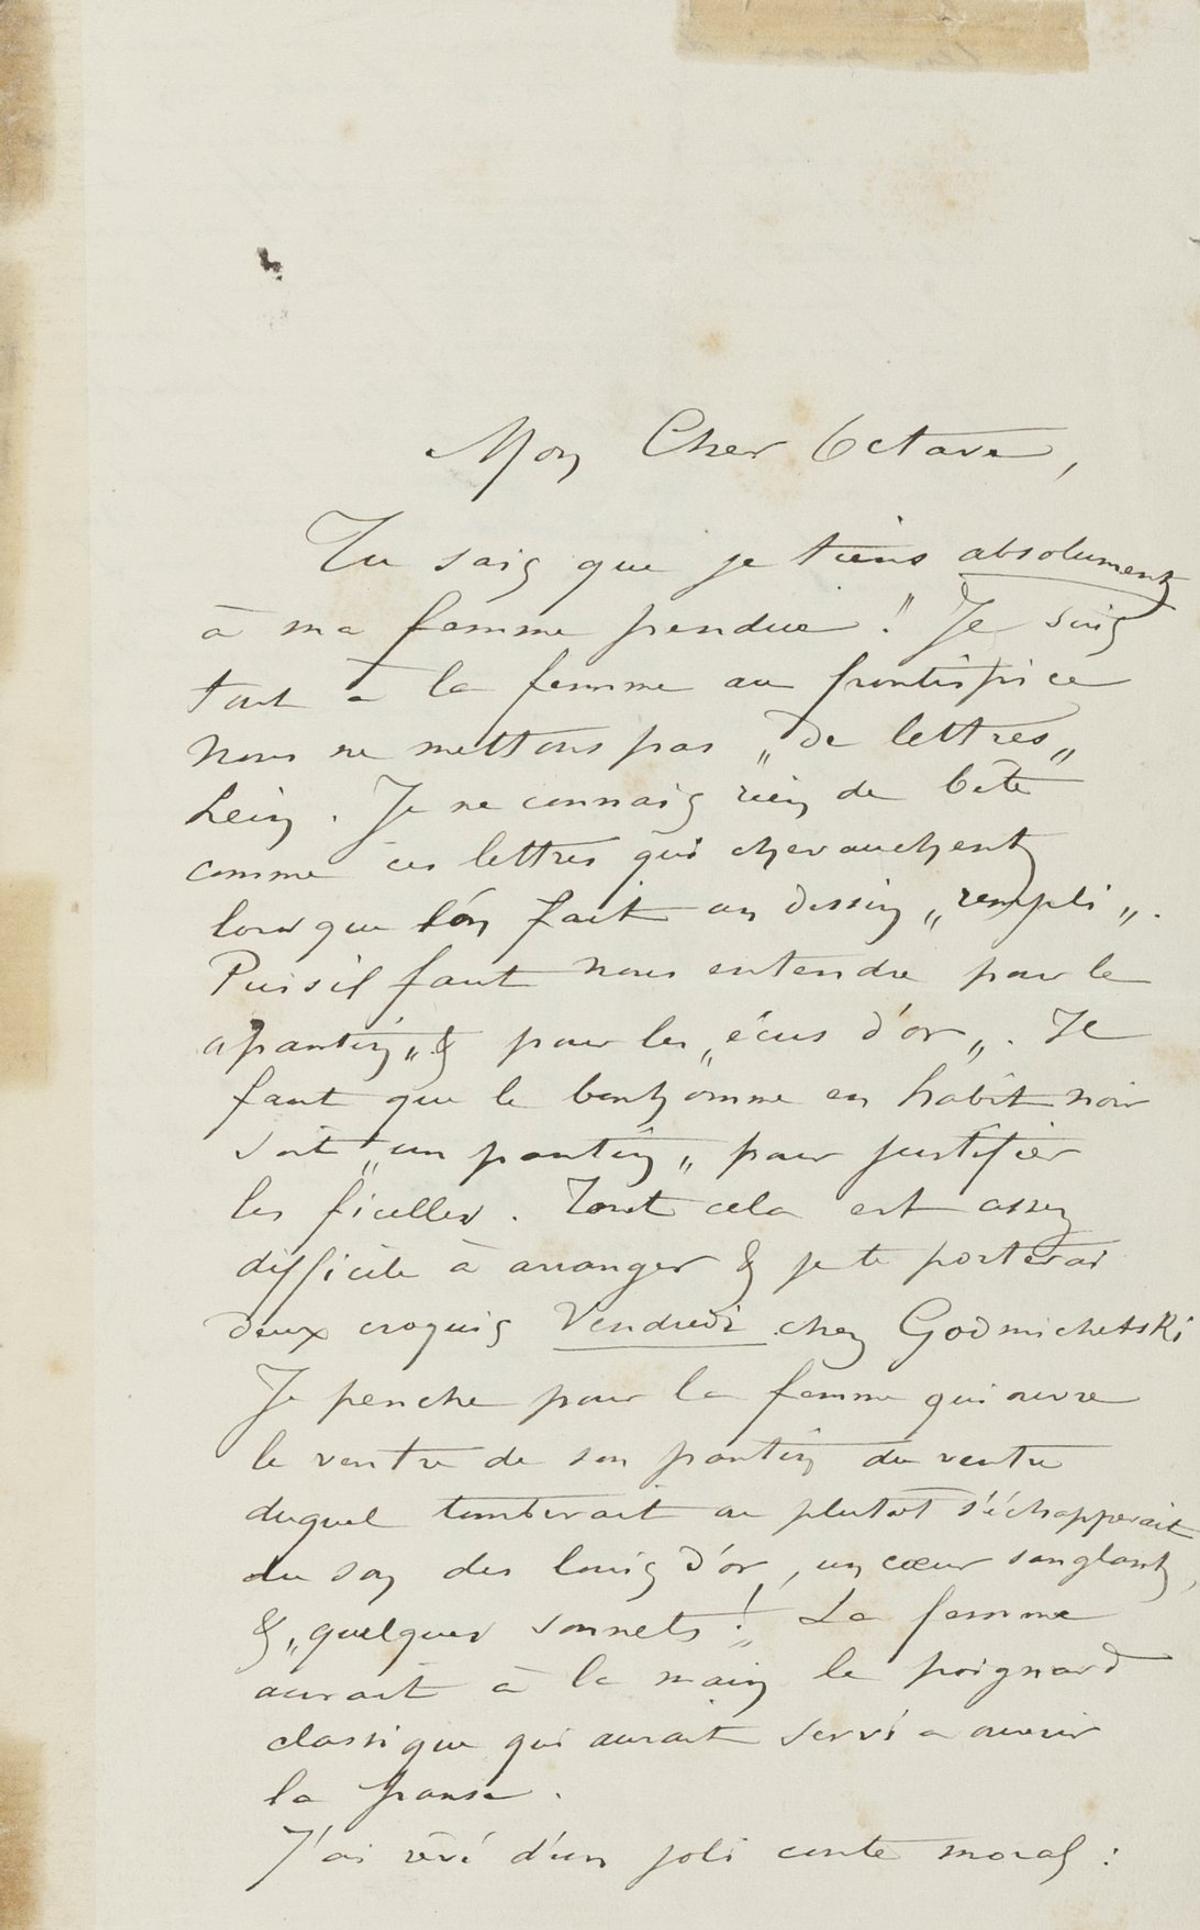 Mon Cher Octave,
Tu sais que je tiens absolument
à ma femme pendue ! Je suis
tout à la femme au frontispice
Nous ne mettons pas „de lettres„
hein. Je ne connais rien de bête
comme ces lettres qui chevauchent
lorsque l'on fait un dessin „rempli„.
Puis il faut nous entendre pour le
pantin„ & pour les „écus d'or„. Il
faut que le bonhomme en habit noir
soit „un pantin„ pour justifier
les ficelles. Tout cela est assez
difficile à arranger & je te porterai
deux croquis Vendredi chez Godmichetski
Je penche pour la femme qui ouvre
le ventre de son pantin du ventre
duquel tomberait ou plutot s'échapperait
du son des louis d'or, un cœur sanglant,
& „quelques sonnets !„ La femme
aurait à la main le poignard
classique qui aurait servi a ouvrir
la panse.
J'ai rêvé d'un joli conte moral :